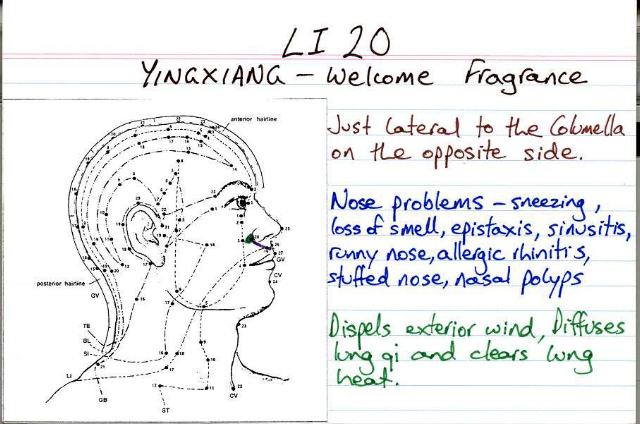 LI 20
YINGXIANG - Welcome Fragrance
anterior hairline
posterior hairline
GV
TB
BL
SI
LI
GB
ST
CV
GV
CV
Just lateral to the Columella
on the opposite side.
Nose problems - sneezing,
loss of smell, epistaxis, sinusitis,
runny nose, allergic rhinitis,
stuffed nose, nasal polyps
Dispels exterior wind, Diffuses
lung qi and clears lung
heat.